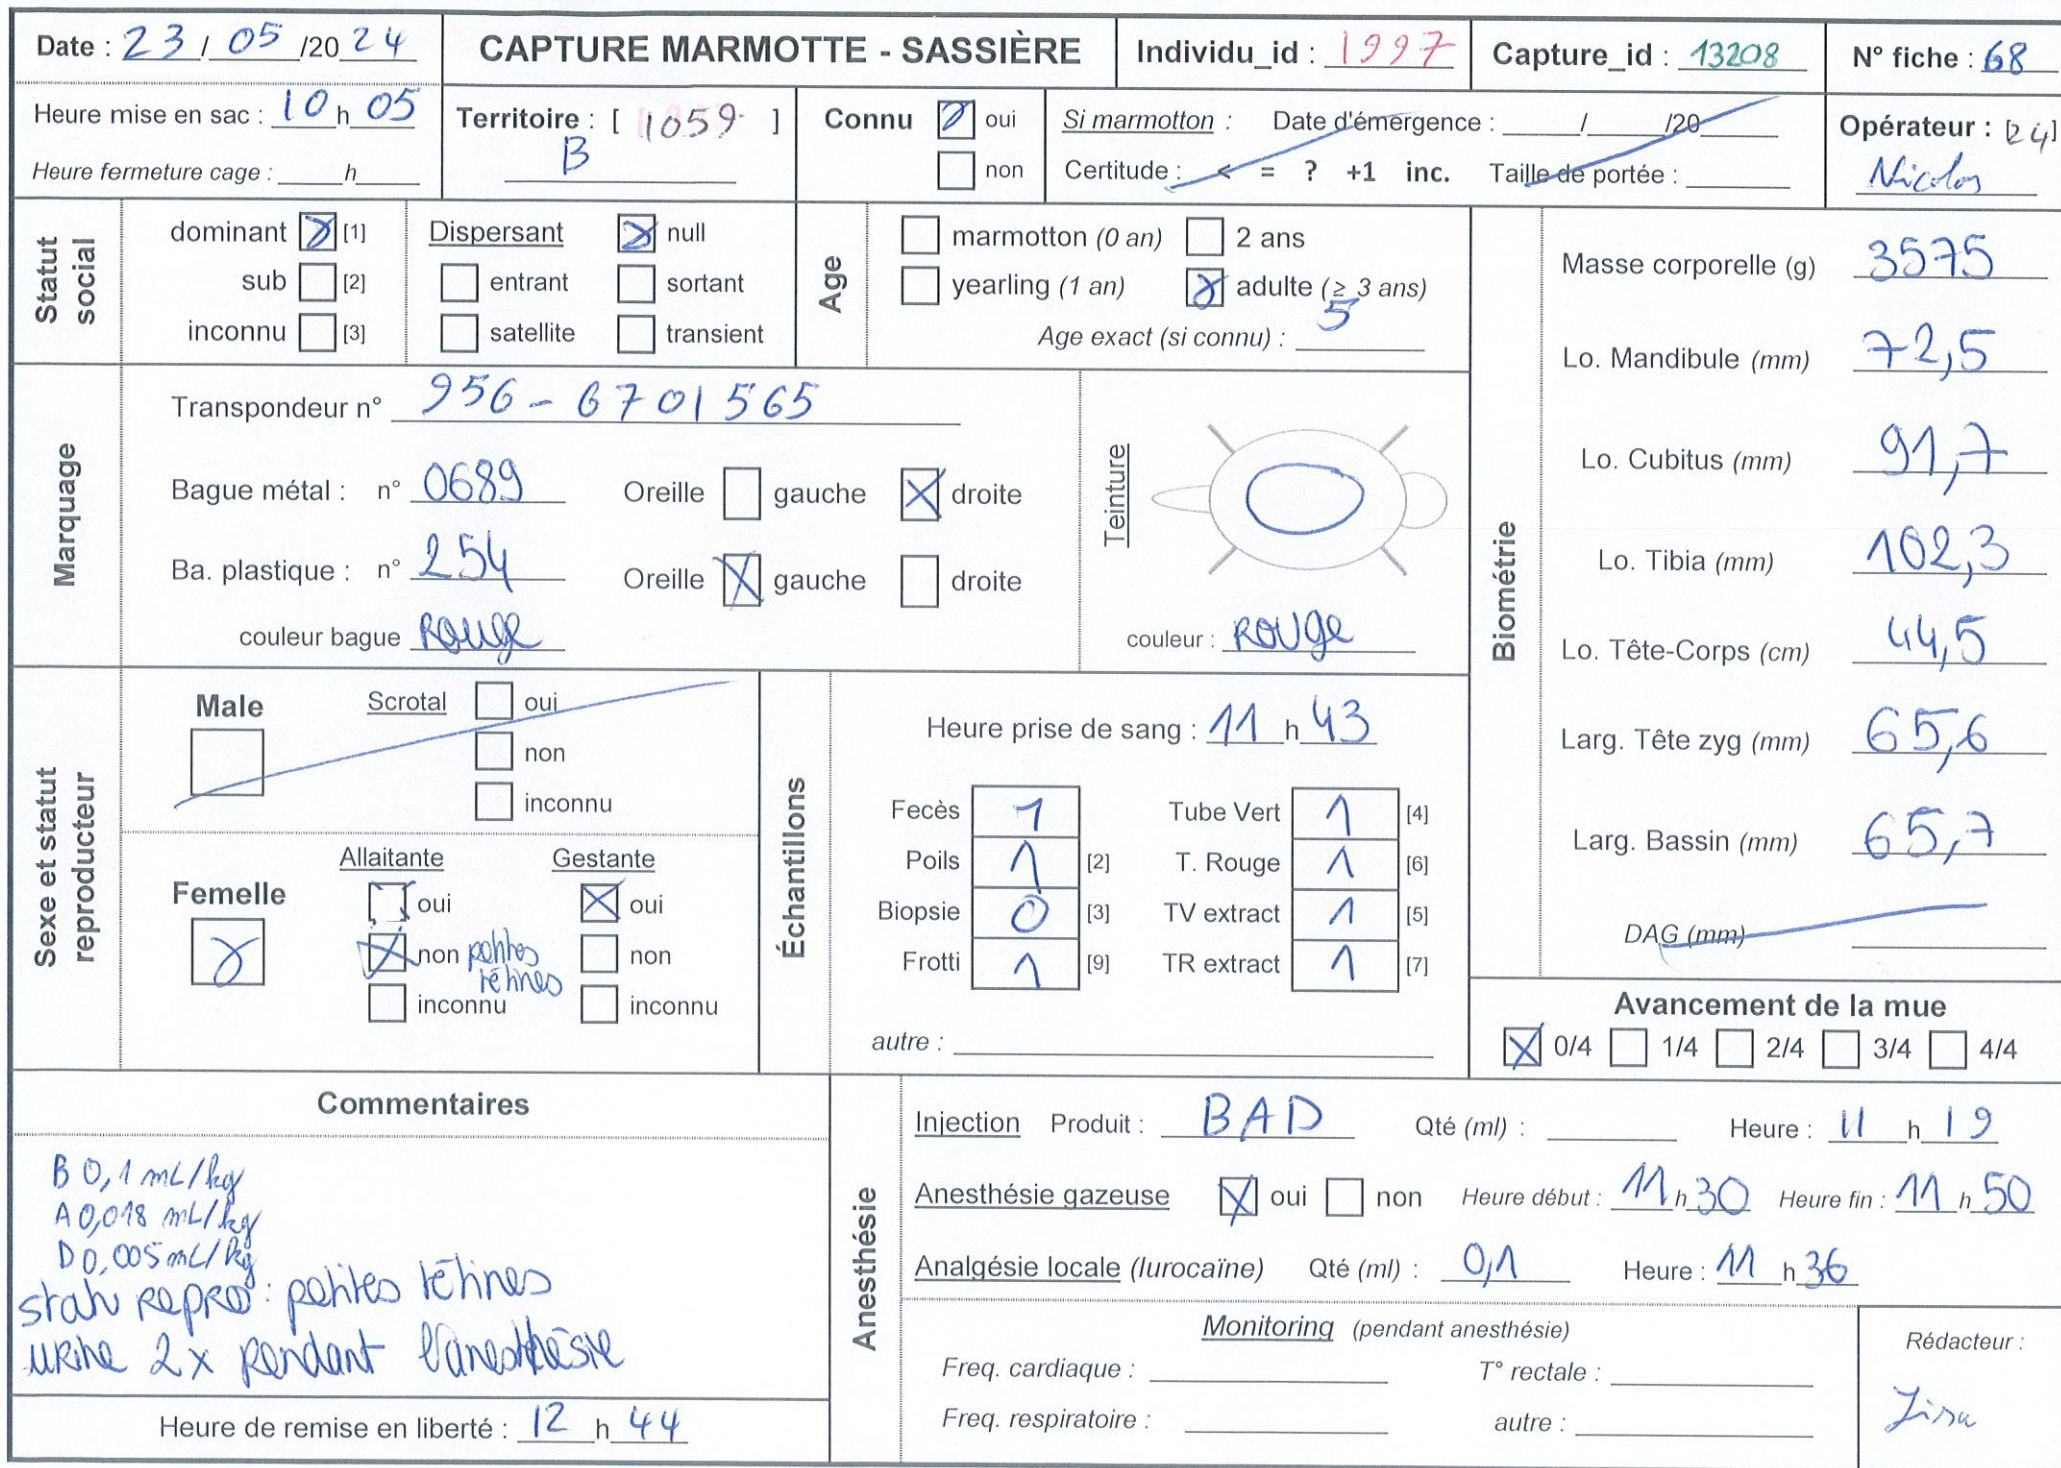 Date : 23 / 05 /20 24
CAPTURE MARMOTTE - SASSIÈRE
Individu_id : 1997
Capture_id : 13208
N° fiche : 68
Heure mise en sac : 10 h 05
Heure fermeture cage : ____ h ____
Territoire : [ 1059 ]
B
Connu oui
non
Si marmotton : Date d'émergence : ____/____/20____
Certitude : < = ? +1 inc. Taille de portée : ____
Opérateur : [24]
Nicolas
Statut social
dominant [1]
sub [2]
inconnu [3]
Dispersant null
entrant sortant
satellite transient
Age
marmotton (0 an) 2 ans
yearling (1 an) adulte (≥ 3 ans)
Age exact (si connu) : 5
Marquage
Transpondeur n° 956-6701565
Bague métal : n° 0689 Oreille gauche droite
Ba. plastique : n° 254 Oreille gauche droite
couleur bague Rouge
Teinture
couleur : ROUge
Biométrie
Masse corporelle (g) 3575
Lo. Mandibule (mm) 72,5
Lo. Cubitus (mm) 91,7
Lo. Tibia (mm) 102,3
Lo. Tête-Corps (cm) 44,5
Larg. Tête zyg (mm) 65,6
Larg. Bassin (mm) 65,7
DAG (mm)
Sexe et statut reproducteur
Male
Scrotal oui
non
inconnu
Femelle
Allaitante Gestante
oui oui
non petites tétines non
inconnu inconnu
Échantillons
Heure prise de sang : 11 h 43
Fecès 1 Tube Vert 1 [4]
Poils 1 [2] T. Rouge 1 [6]
Biopsie 0 [3] TV extract 1 [5]
Frotti 1 [9] TR extract 1 [7]
autre :
Avancement de la mue
0/4 1/4 2/4 3/4 4/4
Commentaires
B 0,1 mL/kg
A 0,018 mL/kg
D 0,005 mL/kg
statu REPRO : petites tétines
URine 2x pendant l'anesthésie
Heure de remise en liberté : 12 h 44
Anesthésie
Injection Produit : BAD Qté (ml) : ____ Heure : 11 h 19
Anesthésie gazeuse oui non Heure début : 11 h 30 Heure fin : 11 h 50
Analgésie locale (lurocaïne) Qté (ml) : 0,1 Heure : 11 h 36
Monitoring (pendant anesthésie)
Freq. cardiaque : ____ T° rectale : ____
Freq. respiratoire : ____ autre : ____
Rédacteur :